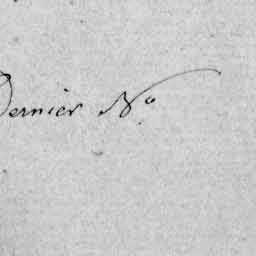 Dernier N°